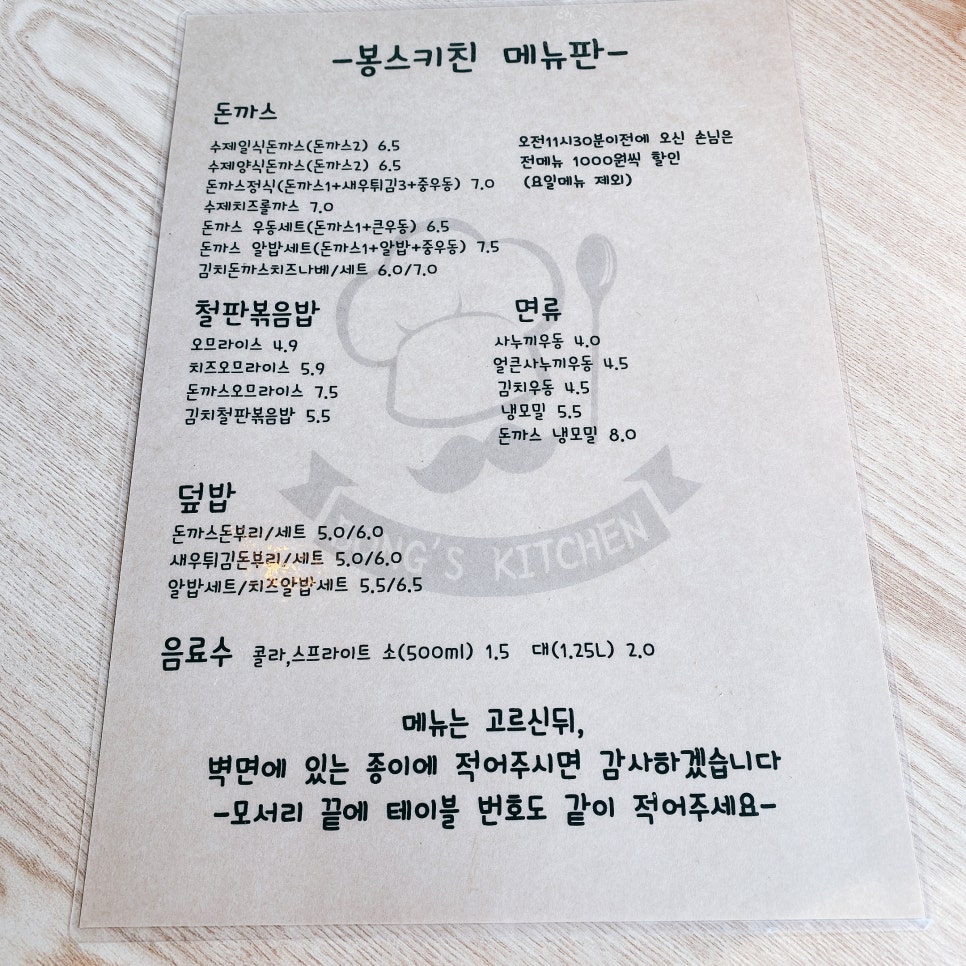 -봉스키친 메뉴판-
돈까스
수제일식돈까스(돈까스2) 6.5
수제양식돈까스(돈까스2) 6.5
돈까스정식(돈까스1+새우튀김3+중우동) 7.0
수제치즈롤까스 7.0
돈까스 우동세트(돈까스1+큰우동) 6.5
돈까스 알밥세트(돈까스1+알밥+중우동) 7.5
김치돈까스치즈나베/세트 6.0/7.0
오전11시30분이전에 오신 손님은
전메뉴 1000원씩 할인
(요일메뉴 제외)
철판볶음밥
오므라이스 4.9
치즈오므라이스 5.9
돈까스오므라이스 7.5
김치철판볶음밥 5.5
면류
사누끼우동 4.0
얼큰사누끼우동 4.5
김치우동 4.5
냉모밀 5.5
돈까스 냉모밀 8.0
덮밥
돈까스돈부리/세트 5.0/6.0
새우튀김돈부리/세트 5.0/6.0
알밥세트/치즈알밥세트 5.5/6.5
KITCHEN
음료수 콜라,스프라이트 소(500ml) 1.5 대(1.25L) 2.0
메뉴는 고르신뒤,
벽면에 있는 종이에 적어주시면 감사하겠습니다
-모서리 끝에 테이블 번호도 같이 적어주세요-